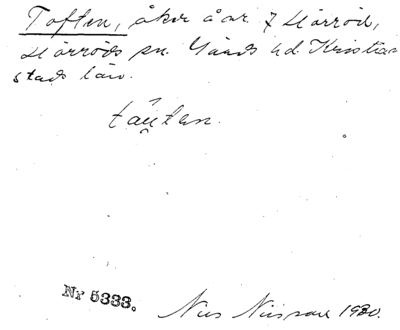 Toften, åker å nr 7 Hörröd,
Hörröds sn. Gärds hd. Kristian
stads län.
Nr 5333.
Nils Nilsson 1930.